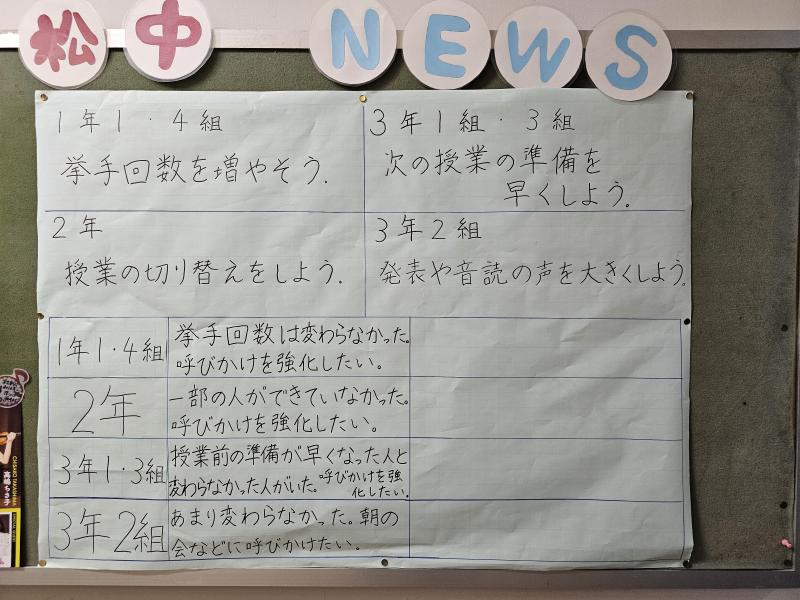 松中 NEWS
1年1・4組
挙手回数を増やそう.
3年1組・3組
次の授業の準備を
早くしよう。
2年
授業の切り替えをしよう.
3年2組
発表や音読の声を大きくしよう。
1年1・4組
挙手回数は変わらなかった。
呼びかけを強化したい。
2年
一部の人ができていなかった。
呼びかけを強化したい。
3年1・3組
授業前の準備が早くなった人と
変わらなかった人がいた。呼びかけを強
化したい。
3年2組
あまり変わらなかった。朝の
会などに呼びかけたい。
CHISAKO TAKASHIMA
高嶋ちさ子